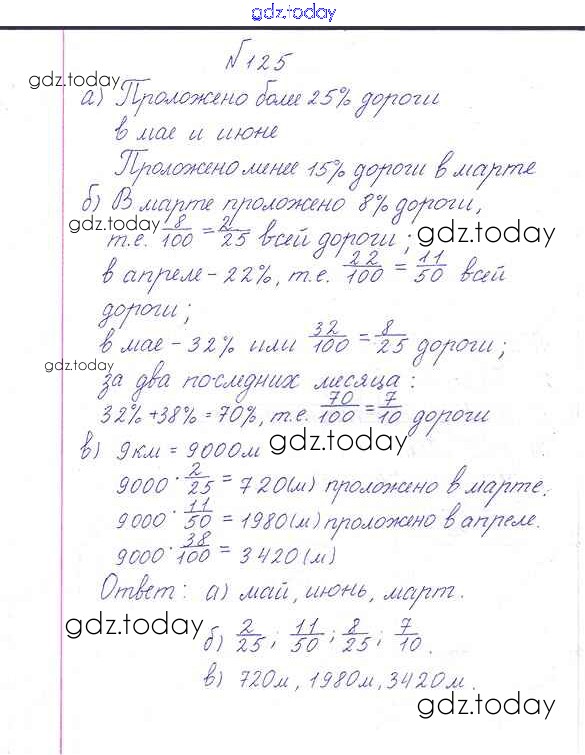 gdz.today
№125
gdz.today
а) Проложено более 25% дороги
в мае и июне
Проложено менее 15% дороги в марте
б) В марте проложено 8% дороги,
gdz.today
т.е. 8/100 = 2/25 всей дороги;
gdz.today
в апреле - 22%, т.е. 22/100 = 11/50 всей
дороги;
в мае - 32% или 32/100 = 8/25 дороги;
gdz.today
за два последних месяца:
32% + 38% = 70%, т.е. 70/100 = 7/10 дороги
в) 9км = 9000м
gdz.today
9000 · 2/25 = 720(м) проложено в марте.
9000 · 11/50 = 1980(м) проложено в апреле.
9000 · 38/100 = 3420(м)
Ответ: а) май, июнь, март.
gdz.today
б) 2/25; 11/50; 8/25; 7/10.
в) 720м, 1980м, 3420м.
gdz.today